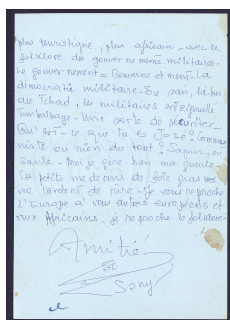 plus touristique, plus africain - avec le
folklore des gouvernements militaires.
Le gouvernement = Gouverne et ment. La
démocratie militaire. Tu sais, là-bas
au Tchad, les militaires ont
Tombalbaye - Livre porte de
Qui est-ce que tu es José? Commu
niste ou rien du tout?
- Moi je gère bien ma gueule.
Ces petits morceaux de foie gras
me tordent de rire - Je vous reproche
l'Europe à vous autres européens et
aux Africains, je reproche le folklore -
Amitié
Sony